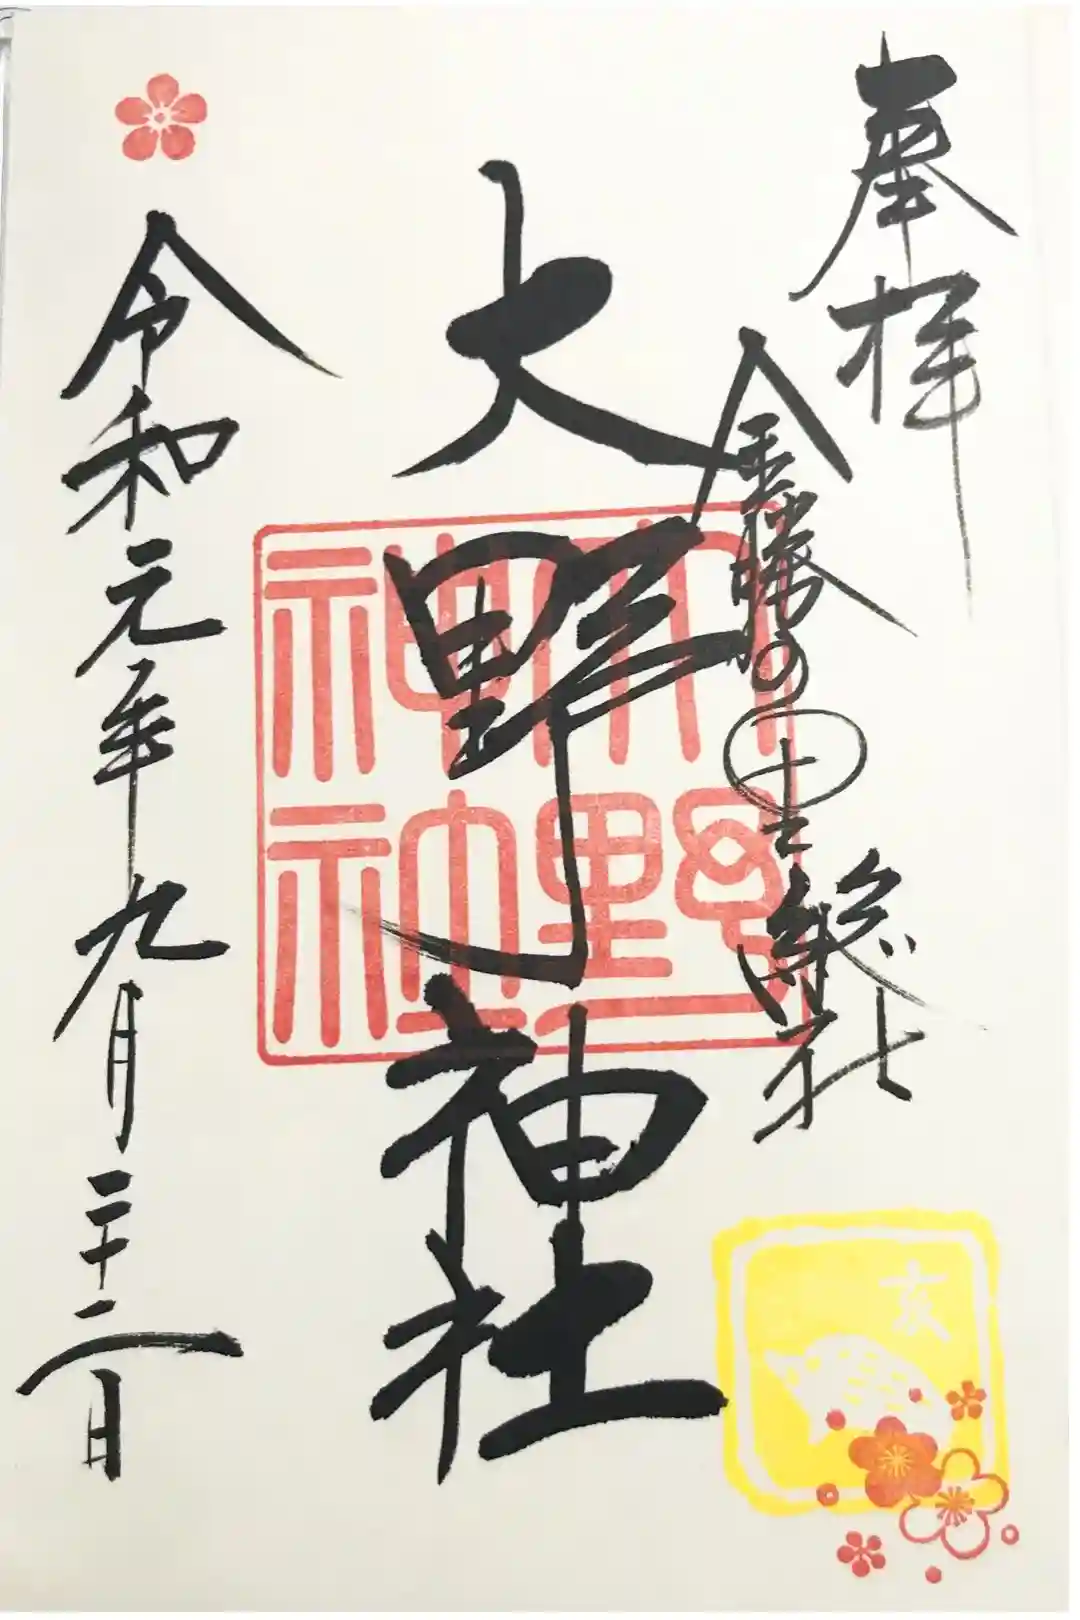 奉拝
金勝の里総社
大野神社
大野
神社
令和元年九月二十二日
亥